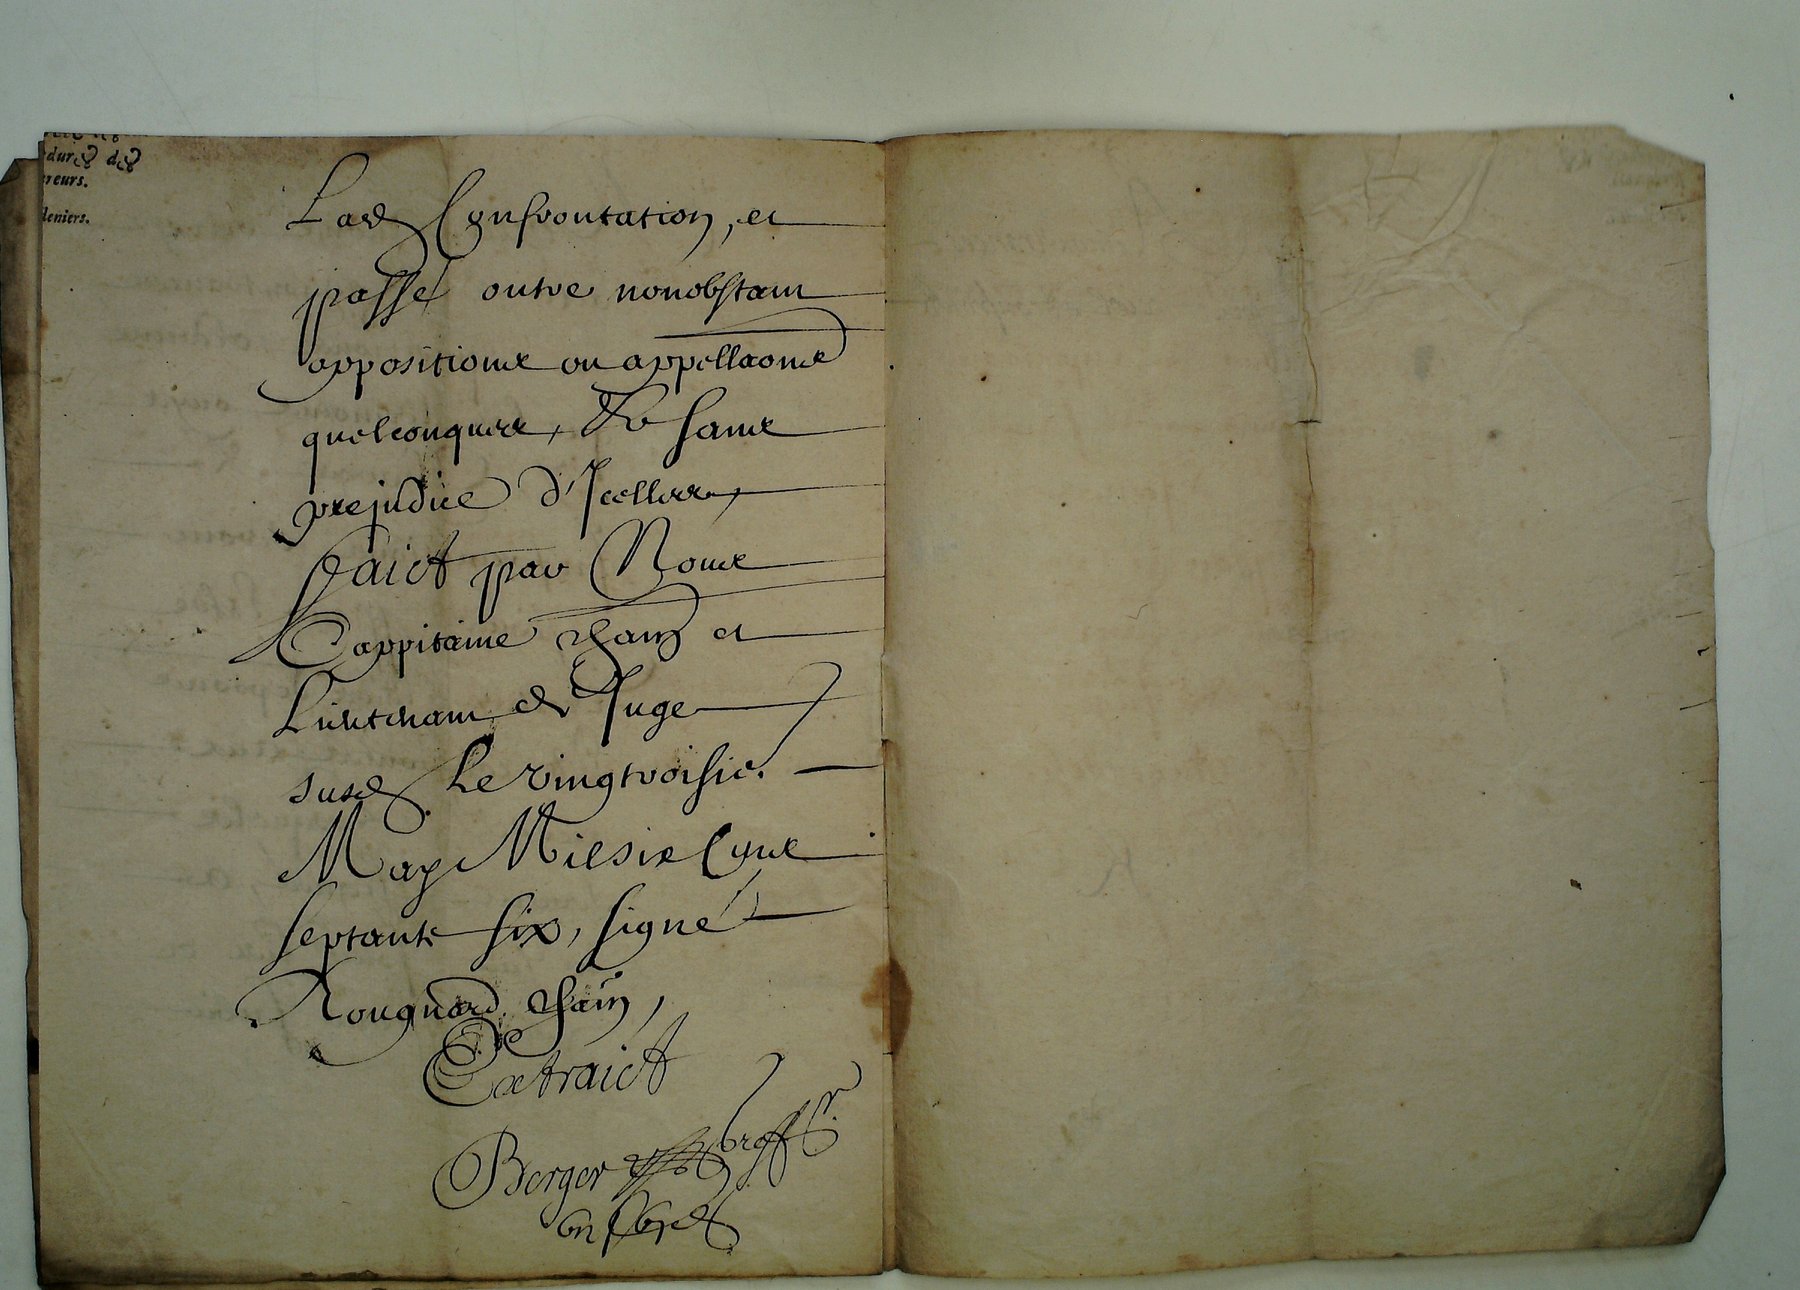 dures des
reurs.
deniers.
Lad Confrontation, et
passé outre nonobstant
oppositions ou appellaons
quelconques, Et sans
prejudice d'Icelles,
Faict par Nous
Cappitaine chain et
Lieutenant de Juge
susd Le vingtroisie.
May Mil six Cens
septante six, signé
Rougnard chain,
Extraict
Berger greffr.